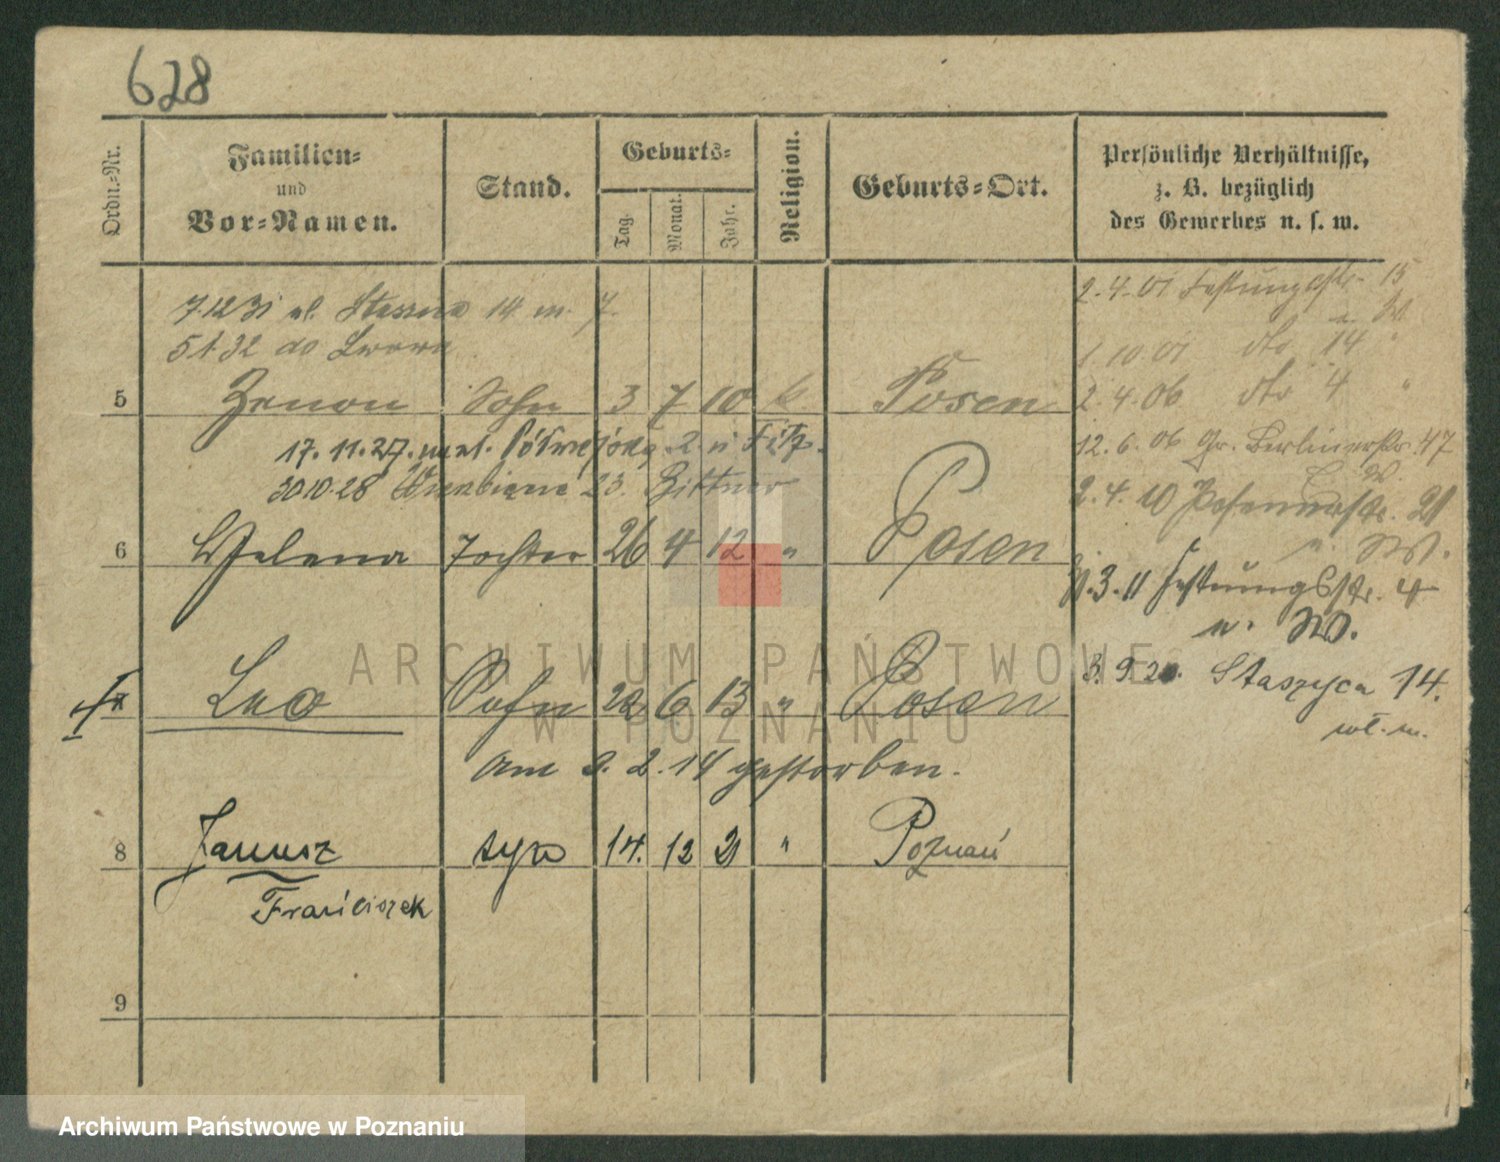 628
Ordn.-Nr.
Familien-
und
Vor-Namen.
Stand.
Geburts-
Tag.
Monat.
Jahr.
Religion.
Geburts-Ort.
Persönliche Verhältnisse,
z. B. bezüglich
des Gewerbes u. s. w.
7.12 31 ul. 14 m. 7.
5.1.32 do Lwowa
5 Zenon Sohn 3 7 10 k. Posen
17.11.27. 2 u
30 10.28 23. Bittner
6 Helena Tochter 26 4 12 " Posen
Leo Sohn 22 6 13 " Posen
Am 9. 2. 14 gestorben.
8 Janusz syn 14. 12 21 " Poznań
Franciszek
9
2.4.01 Festungsstr. 15
1 10 01 dto 14 "
2.4.06 dto 4 "
12.6.06 Gr. Berlinerstr. 47
2.4.10 Posenerstr. 21
.3.11 Festungsstr. 4
u. W.
3.9 20. Staszyca 14.
wł. m.
ARCHIWUM PAŃSTWOWE
W POZNANIU
Archiwum Państwowe w Poznaniu